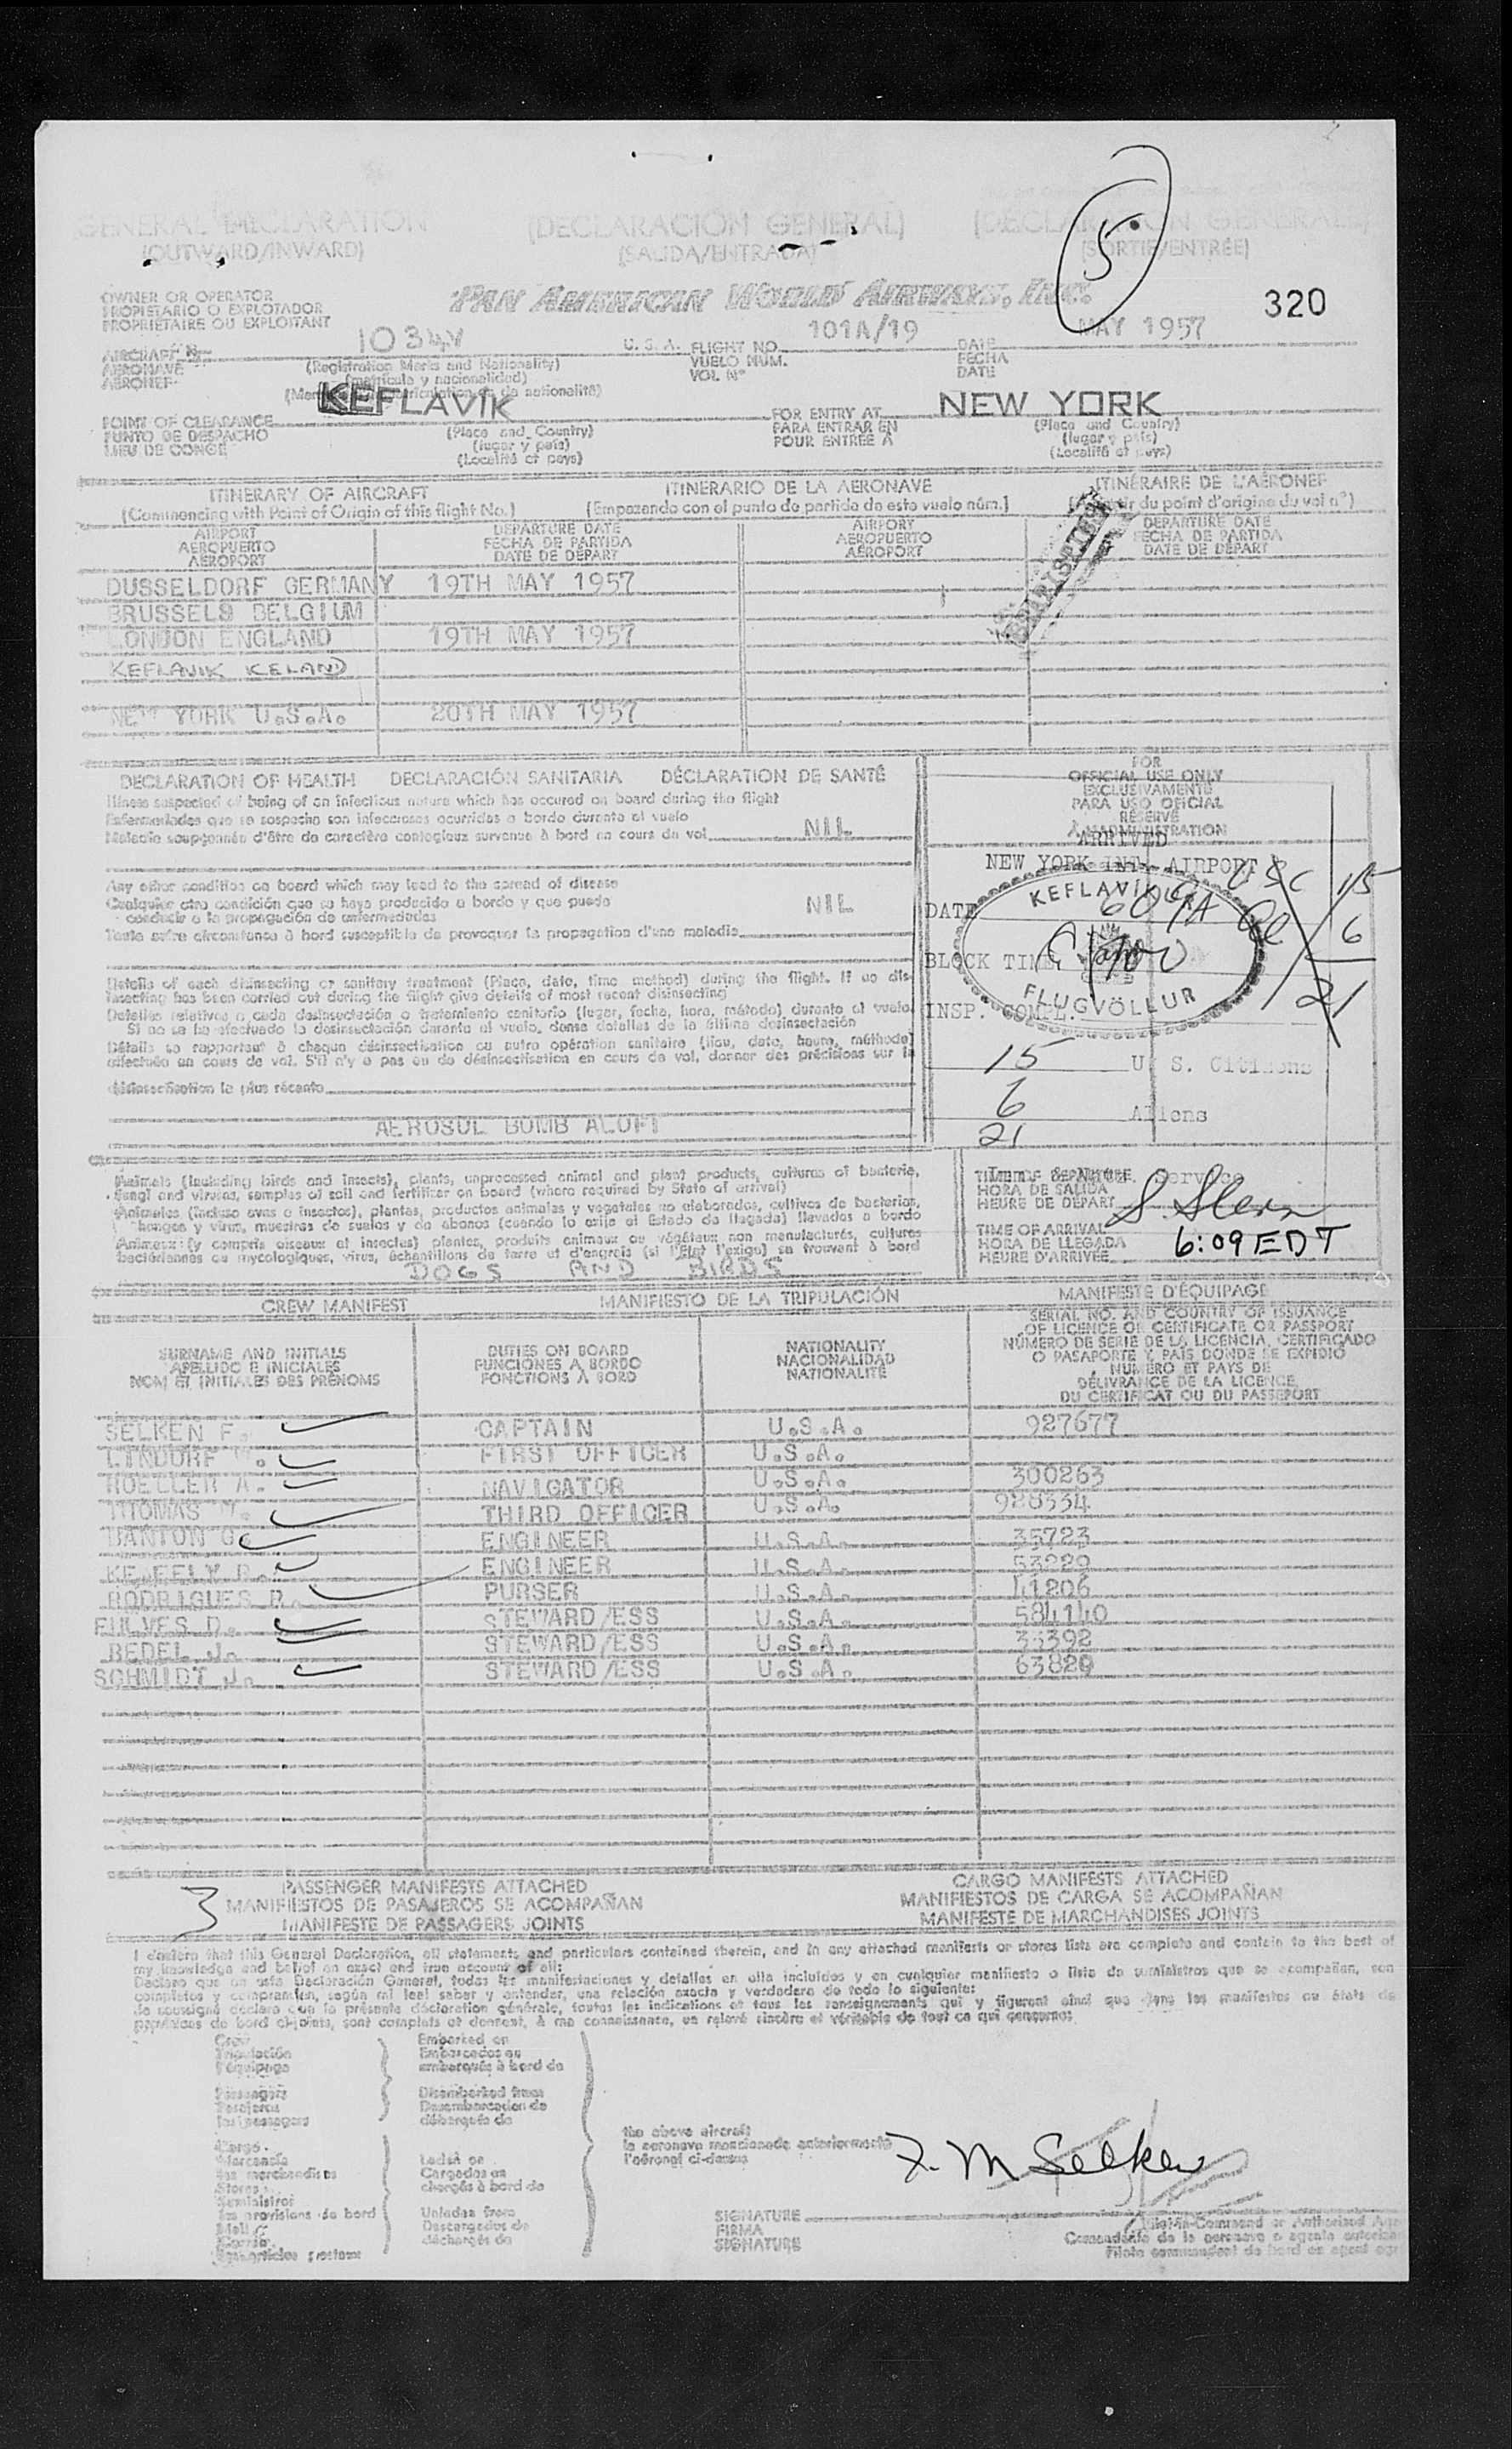 GENERAL DECLARATION (DECLARACIÓN GENERAL) (DECLARATION GENERALE)
(OUTWARD/INWARD) (SALIDA/ENTRADA) (SORTIE/ENTRÉE)
5
OWNER OR OPERATOR
PROPIETARIO O EXPLOTADOR
PROPRIÉTAIRE OU EXPLOITANT
PAN AMERICAN WORLD AIRWAYS, INC.
320
AIRCRAFT 1034V U. S. A. FLIGHT NO. 101A/19 DATE MAY 1957
AERONAVE (Registration Marks and Nationality) VUELO NUM. FECHA
AÉRONEF (matrícula y nacionalidad) VOL Nº DATE
KEFLAVIK NEW YORK
POINT OF CLEARANCE (Place and Country) FOR ENTRY AT (Place and Country)
PUNTO DE DESPACHO (lugar y país) PARA ENTRAR EN (lugar y país)
LIEU DE CONGÉ (Localité et pays) POUR ENTRÉE À (Localité et pays)
ITINERARY OF AIRCRAFT ITINERARIO DE LA AERONAVE ITINÉRAIRE DE L'AÉRONEF
(Commencing with Point of Origin of this flight No.) (Empezando con el punto de partida de este vuelo núm.) du point d'origine du vol nº)
AIRPORT DEPARTURE DATE AIRPORT DEPARTURE DATE
AEROPUERTO FECHA DE PARTIDA AEROPUERTO FECHA DE PARTIDA
AÉROPORT DATE DE DÉPART AÉROPORT DATE DE DÉPART
DUSSELDORF GERMANY 19TH MAY 1957
BRUSSELS BELGIUM
LONDON ENGLAND 19TH MAY 1957
KEFLAVIK ICELAND
NEW YORK U.S.A. 20TH MAY 1957
DECLARATION OF HEALTH DECLARACIÓN SANITARIA DÉCLARATION DE SANTÉ
Illness suspected of being of an infectious nature which has occured on board during the flight
Enfermedades que se sospecha son infecciosas ocurridas a bordo durante el vuelo
Maladie soupçonnée d'être de caractère contagieux survenue à bord en cours de vol NIL
Any other condition on board which may lead to the spread of disease
Cualquier otra condición que se haya producido a bordo y que puede
conducir a la propagación de enfermedades NIL
Toute autre circonstance à bord susceptible de provoquer la propagation d'une maladie
Details of each disinsecting or sanitary treatment (Place, date, time method) during the flight. If no dis-
insecting has been carried out during the flight give details of most recent disinsecting
Detalles relativos a cada desinsectación o tratamiento sanitario (lugar, fecha, hora, método) durante el vuelo.
Si no se ha efectuado la desinsectación durante el vuelo, dense detalles de la última desinsectación
Détails se rapportant à chaque désinsectisation ou autre opération sanitaire (lieu, date, heure, méthode)
effectuée en cours de vol. S'il n'y a pas eu de désinsectisation en cours de vol, donner des précisions sur la
désinsectisation la plus récente
AEROSOL BOMB ALOFT
FOR
OFFICIAL USE ONLY
EXCLUSIVAMENTE
PARA USO OFICIAL
RÉSERVÉ
À L'ADMINISTRATION
ARRIVED
NEW YORK INT. AIRPORT
USC 15
DATE 609A
6
BLOCK TIME
21
INSP. COMPL.
KEFLAVIKUR
FLUGVÖLLUR
15 U. S. Citizens
6 Aliens
21
Animals (including birds and insects), plants, unprocessed animal and plant products, cultures of bacteria,
fungi and viruses, samples of soil and fertilizer on board (where required by State of arrival)
Animales (incluso aves e insectos), plantas, productos animales y vegetales no elaborados, cultivos de bacterias,
hongos y virus, muestras de suelos y de abonos (cuando lo exija el Estado de llegada) llevados a bordo
Animaux (y compris oiseaux et insectes) plantes, produits animaux ou végétaux non manufacturés, cultures
bactériennes ou mycologiques, virus, échantillons de terre et d'engrais (si l'État l'exige) se trouvant à bord
DOGS AND BIRDS
Service
HORA DE SALIDA
HEURE DE DÉPART
TIME OF ARRIVAL
HORA DE LLEGADA 6:09 EDT
HEURE D'ARRIVÉE
CREW MANIFEST MANIFIESTO DE LA TRIPULACIÓN MANIFESTE D'ÉQUIPAGE
SURNAME AND INITIALS DUTIES ON BOARD NATIONALITY SERIAL NO. AND COUNTRY OF ISSUANCE
APELLIDO E INICIALES FUNCIONES A BORDO NACIONALIDAD OF LICENCE OR CERTIFICATE OR PASSPORT
NOM ET INITIALES DES PRÉNOMS FONCTIONS À BORD NATIONALITÉ NÚMERO DE SERIE DE LA LICENCIA, CERTIFICADO
O PASAPORTE Y PAÍS DONDE SE EXPIDIÓ
NUMÉRO ET PAYS DE
DÉLIVRANCE DE LA LICENCE,
DU CERTIFICAT OU DU PASSEPORT
SELKEN F. CAPTAIN U.S.A. 927677
LINDORF FIRST OFFICER U.S.A.
A. NAVIGATOR U.S.A. 300263
THOMAS THIRD OFFICER U.S.A. 928334
DANTON G. ENGINEER U.S.A. 35723
ENGINEER U.S.A. 53229
RODRIGUES R. PURSER U.S.A. 41206
D. STEWARD/ESS U.S.A. 584140
REDEL J. STEWARD/ESS U.S.A.
SCHMIDT J. STEWARD/ESS U.S.A. 63829
3
PASSENGER MANIFESTS ATTACHED CARGO MANIFESTS ATTACHED
MANIFIESTOS DE PASAJEROS SE ACOMPAÑAN MANIFIESTOS DE CARGA SE ACOMPAÑAN
MANIFESTE DE PASSAGERS JOINTS MANIFESTE DE MARCHANDISES JOINTS
I declare that this General Declaration, all statements and particulars contained therein, and in any attached manifests or stores lists are complete and contain to the best of
my knowledge and belief an exact and true account of all:
Declaro que en esta Declaración General, todas las manifestaciones y detalles en ella incluidos y en cualquier manifiesto o lista de suministros que se acompañan, son
completos y comprenden, según mi leal saber y entender, una relación exacta y verdadera de todo lo siguiente:
Je soussigné déclare que la présente déclaration générale, toutes les indications et tous les renseignements qui y figurent ainsi que dans les manifestes ou états de
provisions de bord ci-joints, sont complets et donnent, à ma connaissance, un relevé sincère et véritable de tout ce qui concerne:
Crew Embarked on
Tripulación Embarcados en
l'équipage embarqués à bord de
Passengers Disembarked from
Pasajeros Desembarcados de
les passagers débarqués de
Cargo
Mercancía Laden on
les marchandises Cargados en
Stores chargés à bord de
Suministros
les provisions de bord Unladen from
Mail Descargados de
Correo déchargés de
the above aircraft
la aeronave mencionada anteriormente
l'aéronef ci-dessus
F. M Selken
SIGNATURE
FIRMA
SIGNATURE
Pilot-in-Command or Authorized
Comandante de la aeronave o agente
Pilote commandant de bord ou agent